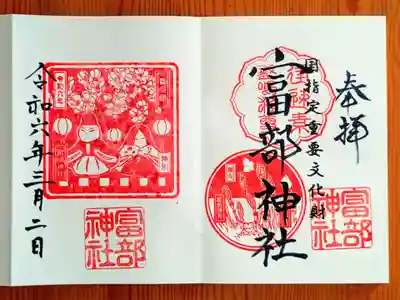 奉拝
国指定重要文化財
富部神社
富部
神社
令和六年三月二日
富部
神社